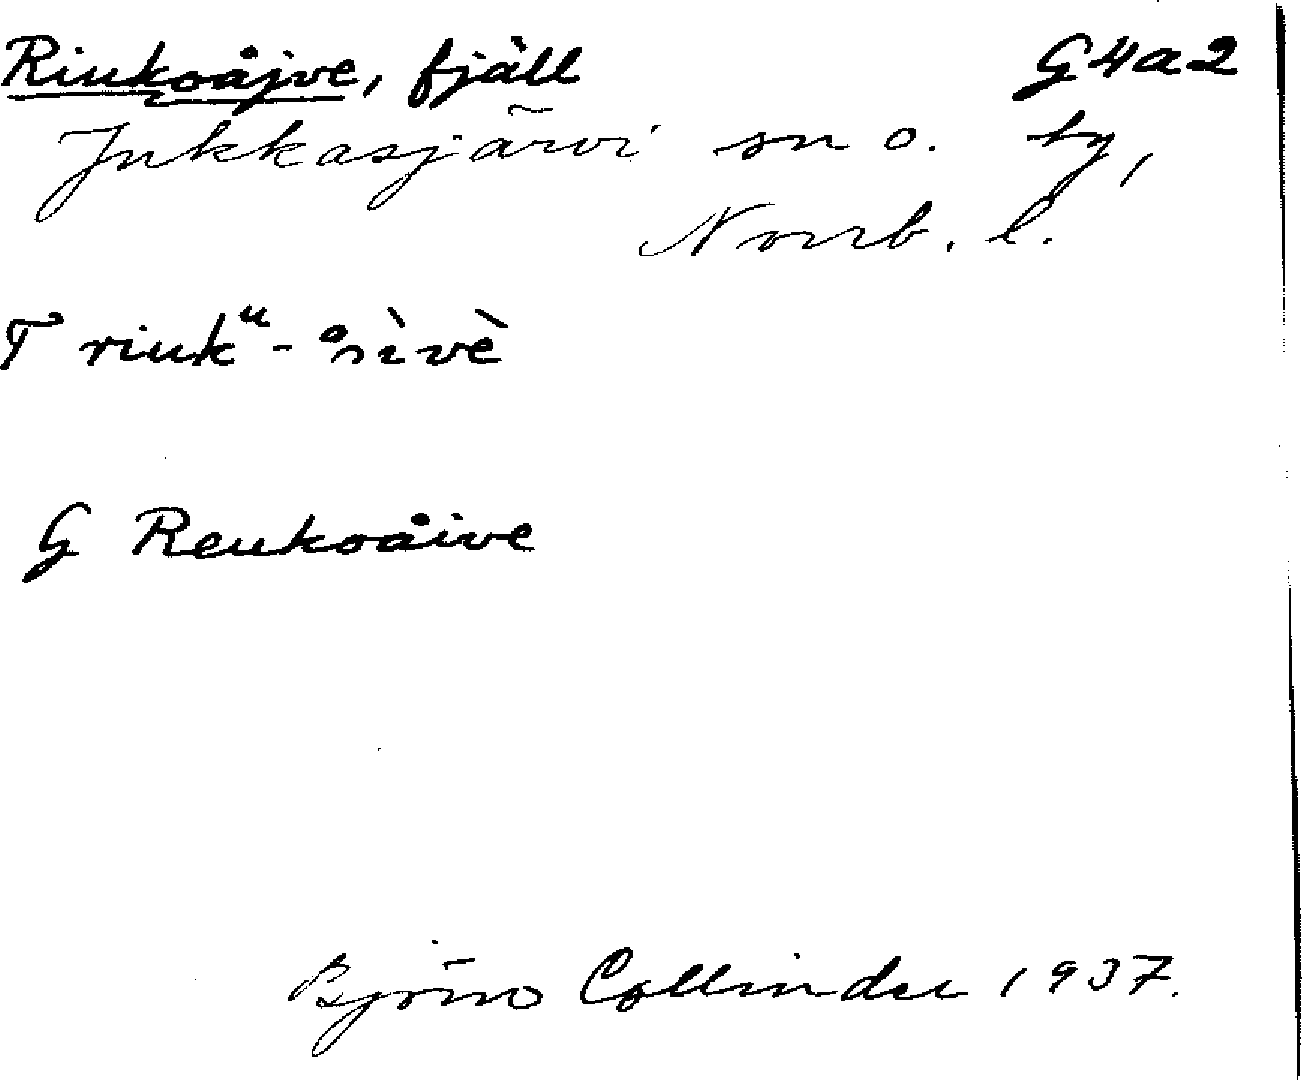 Riukoåjve, fjäll G4a2
Jukkasjärvi sn o. tg,
Norrb. l.
T riukᵘ-
G Reukoåive
Björn Collinder 1937.